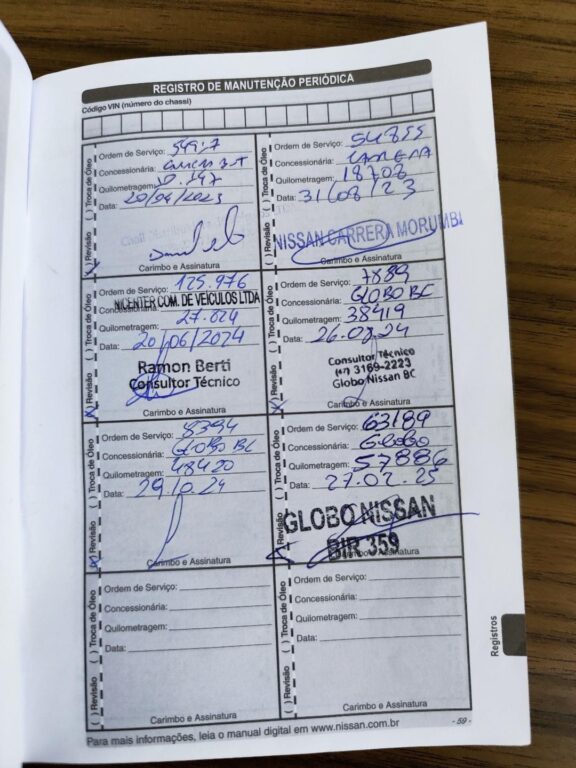 REGISTRO DE MANUTENÇÃO PERIÓDICA
Código VIN (número do chassi)
( ) Revisão ( ) Troca de Óleo
Ordem de Serviço:
Concessionária:
Quilometragem:
Data: 20/04/2023
Carimbo e Assinatura
( ) Revisão ( ) Troca de Óleo
Ordem de Serviço: 54855
Concessionária: CARRERA
Quilometragem: 18708
Data: 31/08/23
NISSAN CARRERA MORUMBI
Carimbo e Assinatura
( ) Revisão ( ) Troca de Óleo
Ordem de Serviço: 125.976
Concessionária: NICENTER COM. DE VEÍCULOS LTDA
Quilometragem: 27.624
Data: 20/06/2024
Ramon Berti
Consultor Técnico
Carimbo e Assinatura
( ) Revisão ( ) Troca de Óleo
Ordem de Serviço: 7889
Concessionária: GLOBO BC
Quilometragem: 38419
Data: 26.08.24
Consultor Técnico
(47) 3169-2223
Globo Nissan BC
Carimbo e Assinatura
( ) Revisão ( ) Troca de Óleo
Ordem de Serviço: 8394
Concessionária: GLOBO BC
Quilometragem: 48420
Data: 29.10.24
Carimbo e Assinatura
( ) Revisão ( ) Troca de Óleo
Ordem de Serviço: 63189
Concessionária: Globo
Quilometragem: 57886
Data: 27.02.25
GLOBO NISSAN
DIR 359
Carimbo e Assinatura
( ) Revisão ( ) Troca de Óleo
Ordem de Serviço:
Concessionária:
Quilometragem:
Data:
Carimbo e Assinatura
( ) Revisão ( ) Troca de Óleo
Ordem de Serviço:
Concessionária:
Quilometragem:
Data:
Carimbo e Assinatura
Registros
Para mais informações, leia o manual digital em www.nissan.com.br
- 59 -